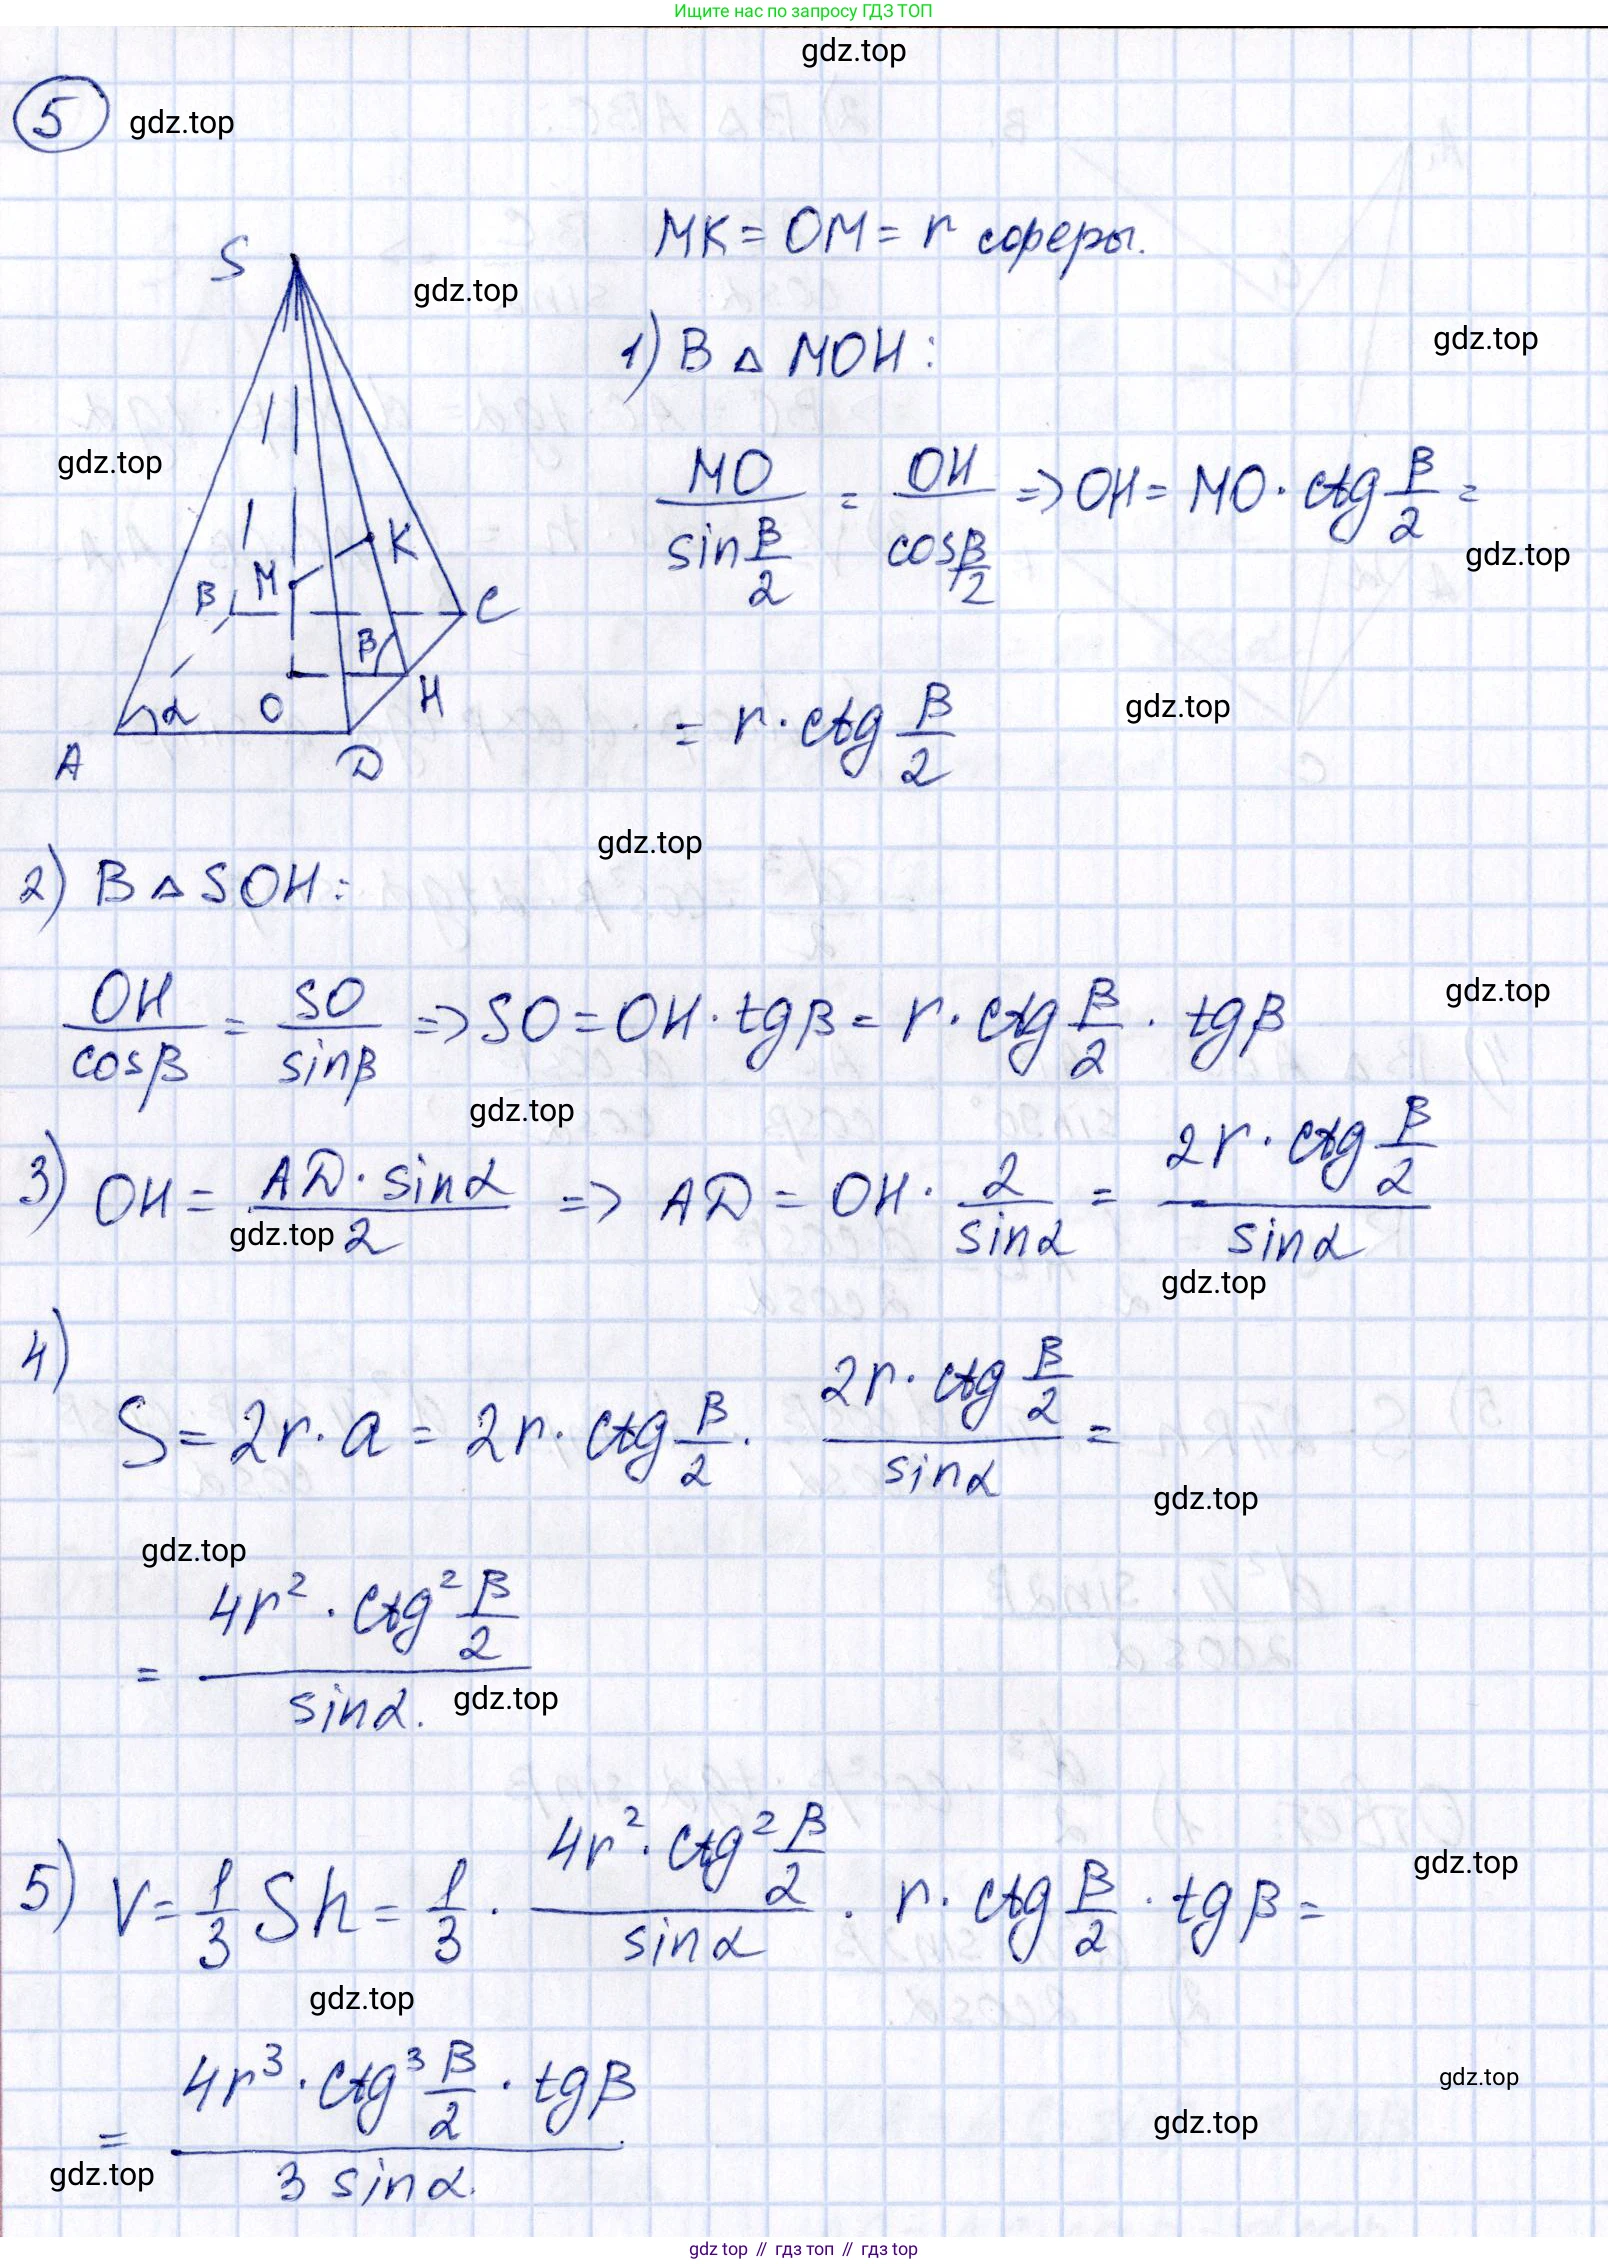 Ищите нас по запросу ГДЗ ТОП
gdz.top
5 gdz.top
MK = OM = r сферы.
S
gdz.top
1) В △ MOH:
gdz.top
gdz.top
MO/sin β/2 = OH/cos β/2 => OH = MO · ctg β/2 =
gdz.top
K
B M C
β
= r · ctg β/2
gdz.top
α O H
A D
gdz.top
2) В △ SOH:
OH/cosβ = SO/sinβ => SO = OH · tgβ = r · ctg β/2 · tgβ
gdz.top
gdz.top
3) OH = AD · sinα/2 => AD = OH · 2/sinα = 2r · ctg β/2/sinα
gdz.top
gdz.top
4)
S = 2r · a = 2r · ctg β/2 · 2r · ctg β/2/sinα =
gdz.top
gdz.top
= 4r² · ctg² β/2/sinα.
gdz.top
5) V = 1/3 Sh = 1/3 · 4r² · ctg² β/2/sinα · r · ctg β/2 · tgβ =
gdz.top
gdz.top
= 4r³ · ctg³ β/2 · tgβ/3 sinα.
gdz.top
gdz.top
gdz.top
gdz top // гдз топ // гдз top